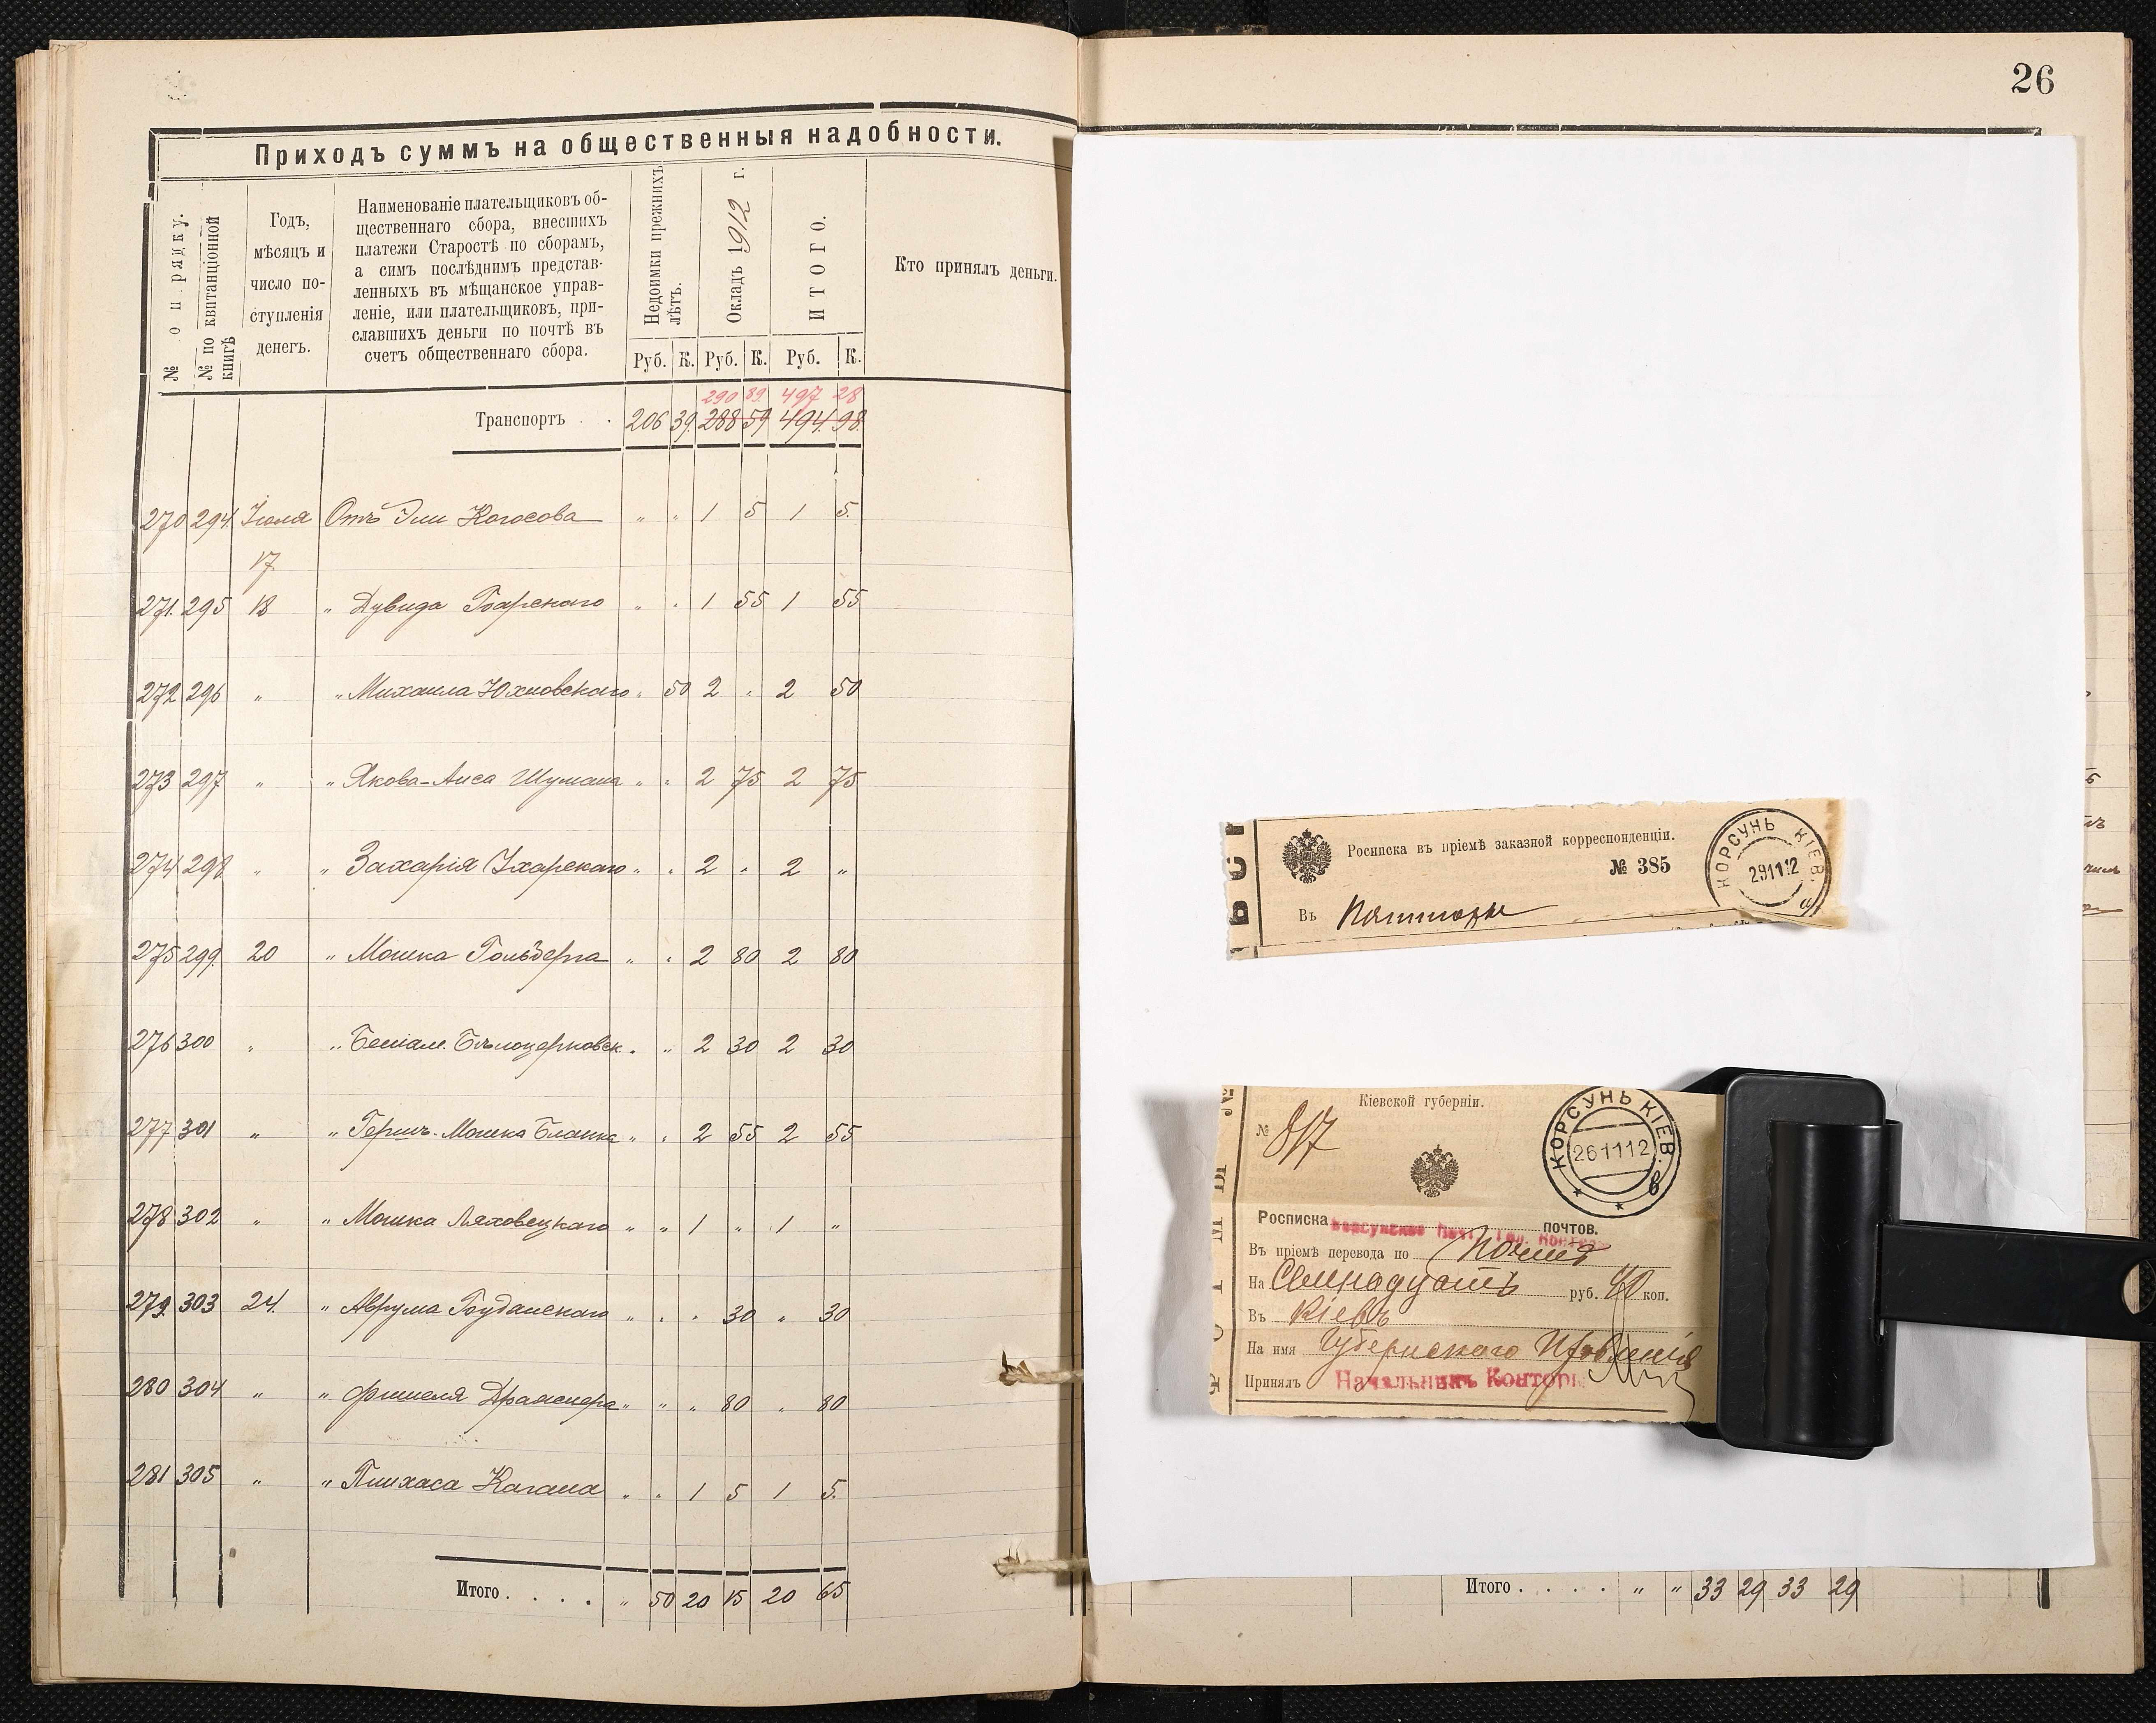 26
Приходъ суммъ на общественныя надобности.
№ по рядку.
№ по квитанціонной книгѣ
Годъ,
мѣсяцъ и
число по-
ступленія
денегъ.
Наименованіе плательщиковъ об-
щественнаго сбора, внесшихъ
платежи Старостѣ по сборамъ,
а симъ послѣднимъ представ-
ленныхъ въ мѣщанское управ-
леніе, или плательщиковъ, при-
славшихъ деньги по почтѣ въ
счетъ общественнаго сбора.
Недоимки прежнихъ
лѣтъ.
Окладъ 1912 г.
ИТОГО.
Кто принялъ деньги.
Руб. К. Руб. К. Руб. К.
290 89 497 28
Транспортъ . . 206 39 288 59 494 98
270 294 Іюля Отъ Эли Когосова " " 1 5 1 5
17
271 295 18 " Дувида " " 1 55 1 55
272 296 " " Михаила Юхновскаго " 50 2 " 2 50
273 297 " " Якова-Анса Шумана " " 2 75 2 75
274 298 " " Захарія " " 2 " 2 "
275 299 20 " Мошка " " 2 80 2 80
276 300 " " Беніам. Бѣлоцерковск. " " 2 30 2 30
277 301 " " Гершъ-Мошка Бланка " " 2 55 2 55
278 302 " " Мошка Ляховецкаго " " 1 " 1 "
279 303 24 " Аврума " " " 30 " 30
280 304 " " Фишеля " " " 80 " 80
281 305 " " Пинхаса Кагана " " 1 5 1 5
Итого. . . . " 50 20 15 20 65
Росписка въ пріемѣ заказной корреспонденціи.
№ 385
Въ
КОРСУНЬ КІЕВ.
291112
а
Кіевской губерніи.
№ 817
КОРСУНЬ КІЕВ.
261112
в
Росписка почтов.
Въ пріемѣ перевода по Почтѣ
На Семнадцать руб. 40 коп.
Въ Кіевъ
На имя Губернскаго Правленія
Принялъ Начальникъ Конторы
Итого . . . . " " 33 29 33 29